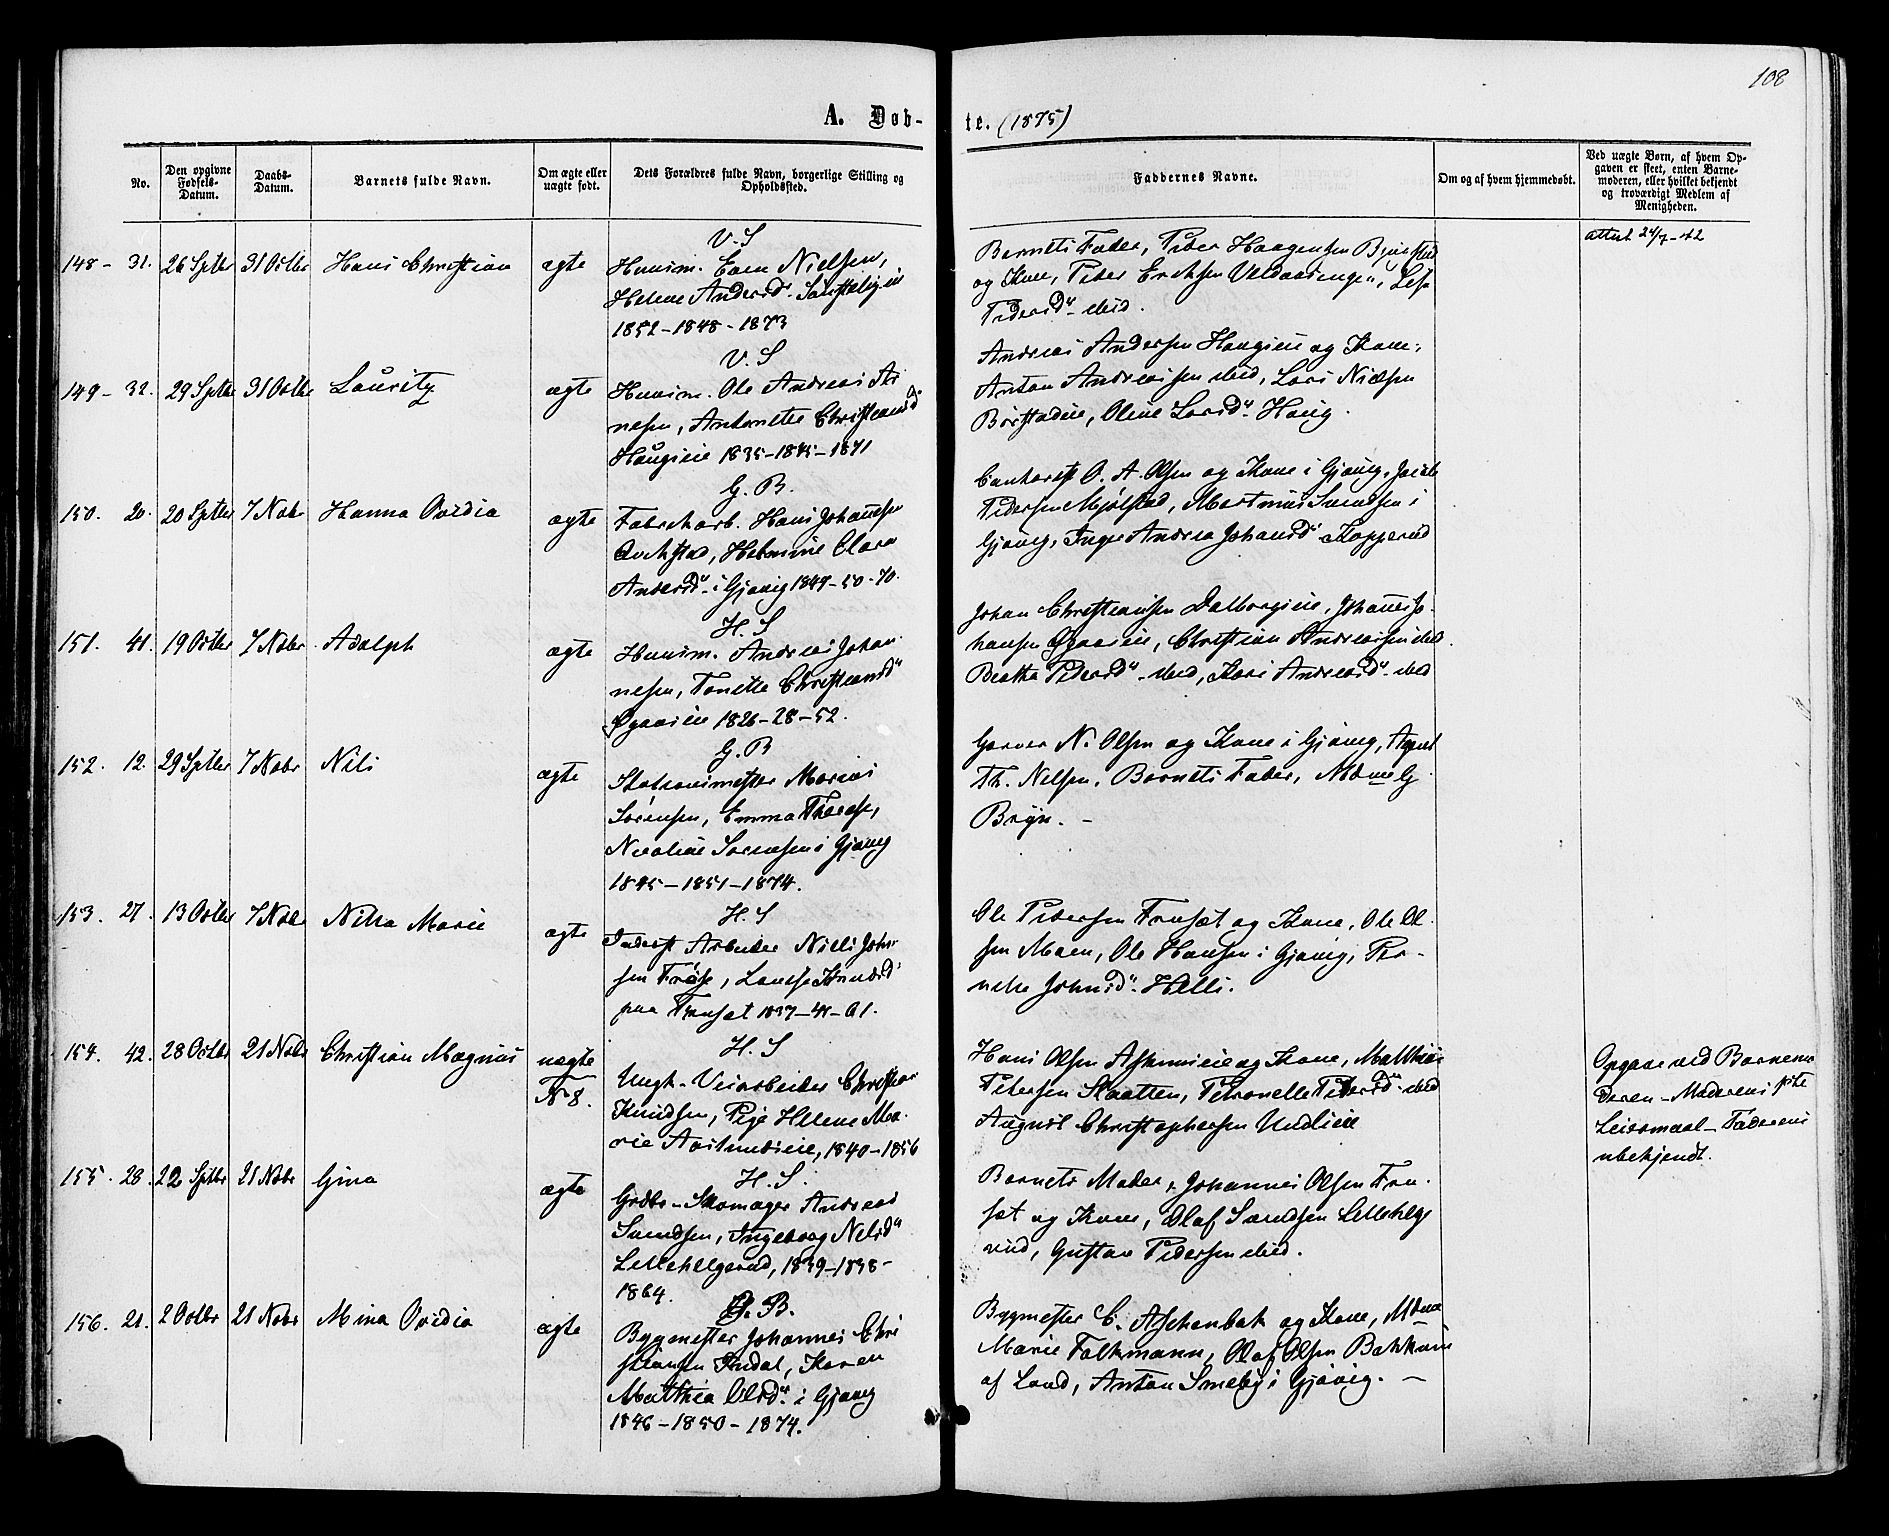 108
A. Døb-
te. (1875)
No.
Den opgivne Fødsels-Datum.
Daabs-Datum.
Barnets fulde Navn.
Om ægte eller uægte født.
Dets Forældres fulde Navn, borgerlige Stilling og Opholdssted.
Faddernes Navne.
Om og af hvem hjemmedøbt.
Ved uægte Børn, af hvem Opgaven er skeet, enten Barnemoderen, eller hvilket bekjendt og troværdigt Medlem af Menigheden.
V. S
148 - 31. 26 Septbr 31 Octbr Hans Christian ægte
Huusm. Even Nielsen,
Helene Andersd.
1852 - 1848 - 1873
Barnets Fader, Peder Haagensen
og Kone, Peder Eriksen
Pedersd. ibid.
attest 24/7-42
V. S
149 - 32. 29 Septbr 31 Octbr Lauritz ægte
Huusm. Ole Andreas Ar
nesen, Antonette Christiansd
Haugseie 1835 - 1845 - 1871
Andreas Andersen Haugseie og Kone,
Anton Andreassen ibid, Lars Nielsen
Børstadeie, Oline Larsd. Haug.
G. B.
150. 20. 20 Septbr 7 Nobr Hanna Ovidia ægte
Fabrikarb. Hans Johannesen
Qvikstad, Helmine Clara
Andersd. i Gjøvig 1849 - 50 - 70.
O. A. Olsen og Kone i Gjøvig, Jacob
Pedersen Mjølstad, Martinus Svendsen i
Gjøvig, Inger Andrea Johansd. Kopperud
H. S
151. 41. 19 Octbr 7 Nobr Adolph ægte
Huusm. Andreas Johan
nesen, Tonette Christiansd
Øgaaseie 1826 - 28 - 52.
Johan Christiansen Dalborgeie, Johannes Jo-
hansen Øgaaseie, Christian Andreassen ibid
Berthe Pedersd. ibid, Kari Andreasd. ibid
G. B
152. 12. 29 Septbr 7 Nobr Nils ægte
Stationsmester Marius
Sørensen, Emma Therese,
Nicoline Sørensen i Gjøvig
1845 - 1851 - 1874.
Garver N. Olsen og Kone i Gjøvig, Agent
Th. Nelsen, Barnets Fader, Mdme G.
Bryn. -
H. S
153. 27. 13 Octbr 7 Nobr Nilla Marie ægte
Inderst Arbeider Nils John
sen Frøse, Lovise Knudsd
paa Fruset 1837 - 41 - 61.
Ole Pedersen Fruset og Kone, Ole Ol-
sen Moen, Ole Hansen i Gjøvig, Per-
nelle Johnsd. Helli.
H. S
154. 42. 28 Octbr 21 Nobr Christian Magnus uægte
N 8.
Ungk. Veiarbeider Christian
Knudsen, Pige Helene Ma-
rie Aaslundseie, 1840 - 1856
Hans Olsen Askimeie og Kone, Matthias
Pedersen Slaatten, Petronelle Pedersd. ibid
August Christophersen Undlieie
Opgave ved Barnemo
deren - Moderens 1ste
Leiermaal - Faderens
ubekjendt.
H. S.
155. 28. 22 Septbr 21 Nobr Gina ægte
Grdbr. - Skomager Andreas
Svendsen, Ingeborg Nelsd
Lillehelgerud, 1839 - 1838 -
1864.
Barnets Moder, Johannes Olsen Fru-
set og Kone, Olaf Svendsen Lillehelge
rud, Gustav Pedersen ibid.
G. B.
156. 21. 2 Octbr 21 Nobr Mina Ovidia ægte
Bygmester Johannes Chri
stiansen Indal, Karen
Matthea Olsd. i Gjøvig
1846 - 1850 - 1874.
Bygmester C. Aschenbak og Kone, Mdme
Marie Falkmann, Olaf Olsen Bakken
af Land, Anton Smeby i Gjøvig. -